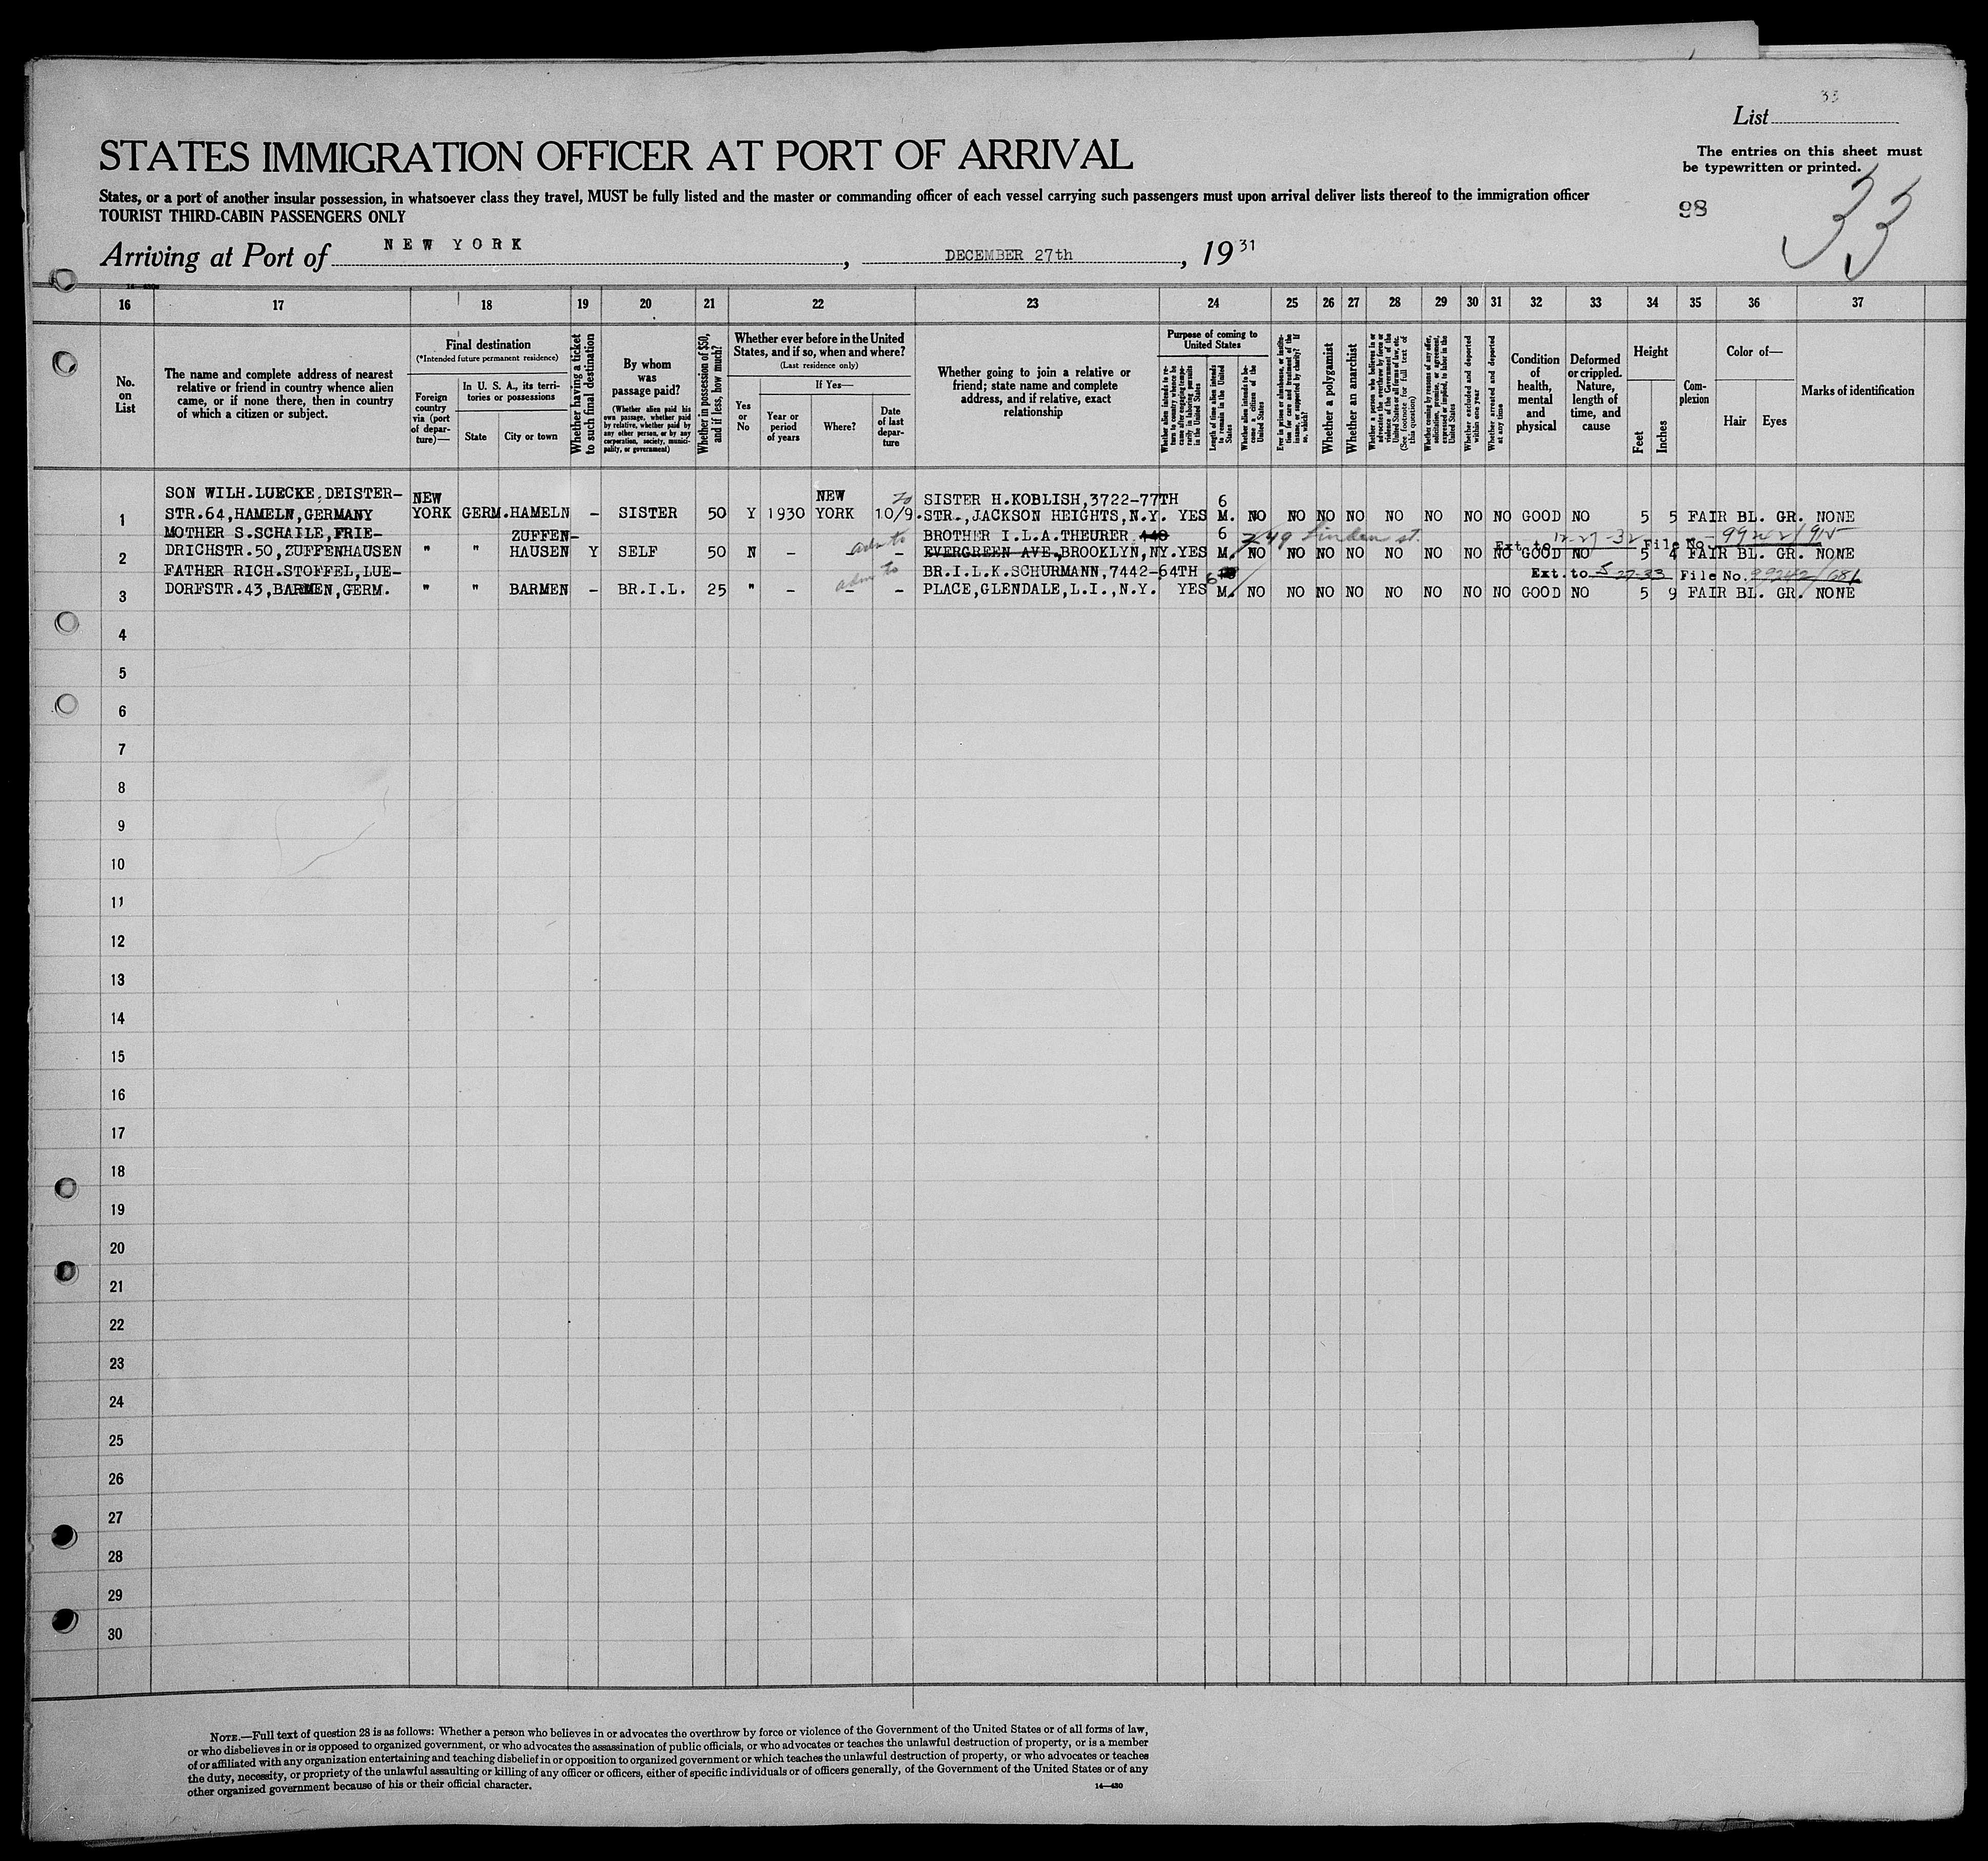 33
List
STATES IMMIGRATION OFFICER AT PORT OF ARRIVAL
The entries on this sheet must
be typewritten or printed.
States, or a port of another insular possession, in whatsoever class they travel, MUST be fully listed and the master or commanding officer of each vessel carrying such passengers must upon arrival deliver lists thereof to the immigration officer
TOURIST THIRD-CABIN PASSENGERS ONLY
98
33
Arriving at Port of NEW YORK, DECEMBER 27th, 1931
16 17 18 19 20 21 22 23 24 25 26 27 28 29 30 31 32 33 34 35 36 37
No.
on
List
The name and complete address of nearest
relative or friend in country whence alien
came, or if none there, then in country
of which a citizen or subject.
Final destination
(*Intended future permanent residence)
Foreign
country
via (port
of depar-
ture)—
In U. S. A., its terri-
tories or possessions
State
City or town
Whether having a ticket
to such final destination
By whom
was
passage paid?
(Whether alien paid his
own passage, whether paid
by relative, whether paid by
any other person, or by any
corporation, society, munici-
pality, or government)
Whether in possession of $50,
and if less, how much?
Whether ever before in the United
States, and if so, when and where?
(Last residence only)
Yes
or
No
If Yes—
Year or
period
of years
Where?
Date
of last
depar-
ture
Whether going to join a relative or
friend; state name and complete
address, and if relative, exact
relationship
Purpose of coming to
United States
Whether alien intends to re-
turn to country whence he
came after engaging tempo-
rarily in laboring pursuits
in the United States
Length of time alien intends
to remain in the United
States
Whether alien intends to be-
come a citizen of the
United States
Ever in prison or almshouse, or institu-
tion for care and treatment of the
insane, or supported by charity? If
so, which?
Whether a polygamist
Whether an anarchist
Whether a person who believes in or
advocates the overthrow by force or
violence of the Government of the
United States or all forms of law, etc.
(See footnote for full text of
this question)
Whether coming by reason of any offer,
solicitation, promise, or agreement,
expressed or implied, to labor in the
United States
Whether excluded and deported
within one year
Whether arrested and deported
at any time
Condition
of
health,
mental
and
physical
Deformed
or crippled.
Nature,
length of
time, and
cause
Height
Feet
Inches
Com-
plexion
Color of—
Hair
Eyes
Marks of identification
SON WILH.LUECKE,DEISTER- NEW NEW 20 SISTER H.KOBLISH,3722-77TH 6
1 STR.64,HAMELN,GERMANY YORK GERM.HAMELN - SISTER 50 Y 1930 YORK 10/9. STR.,JACKSON HEIGHTS,N.Y. YES M. NO NO NO NO NO NO NO NO GOOD NO 5 5 FAIR BL. GR. NONE
MOTHER S.SCHAILE,FRIE- ZUFFEN- adm to BROTHER I.L.A.THEURER 140 6 749 Linden st. Ext. to 12-27-32 File No.
2 DRICHSTR.50,ZUFFENHAUSEN " " HAUSEN Y SELF 50 N - - - EVERGREEN AVE.,BROOKLYN,NY.YES M. NO NO NO NO NO NO NO NO GOOD NO 5 4 FAIR BL. GR. NONE
FATHER RICH.STOFFEL,LUE- adm to BR.I.L.K.SCHURMANN,7442-64TH 6 Ext. to 5 27-33 File No. 99242/681
3 DORFSTR.43,BARMEN,GERM. " " BARMEN - BR.I.L. 25 " - - - PLACE,GLENDALE,L.I.,N.Y. YES M. NO NO NO NO NO NO NO NO GOOD NO 5 9 FAIR BL. GR. NONE
4
5
6
7
8
9
10
11
12
13
14
15
16
17
18
19
20
21
22
23
24
25
26
27
28
29
30
NOTE.—Full text of question 28 is as follows: Whether a person who believes in or advocates the overthrow by force or violence of the Government of the United States or of all forms of law,
or who disbelieves in or is opposed to organized government, or who advocates the assassination of public officials, or who advocates or teaches the unlawful destruction of property, or is a member
of or affiliated with any organization entertaining and teaching disbelief in or opposition to organized government or which teaches the unlawful destruction of property, or who advocates or teaches
the duty, necessity, or propriety of the unlawful assaulting or killing of any officer or officers, either of specific individuals or of officers generally, of the Government of the United States or of any
other organized government because of his or their official character.
14—430